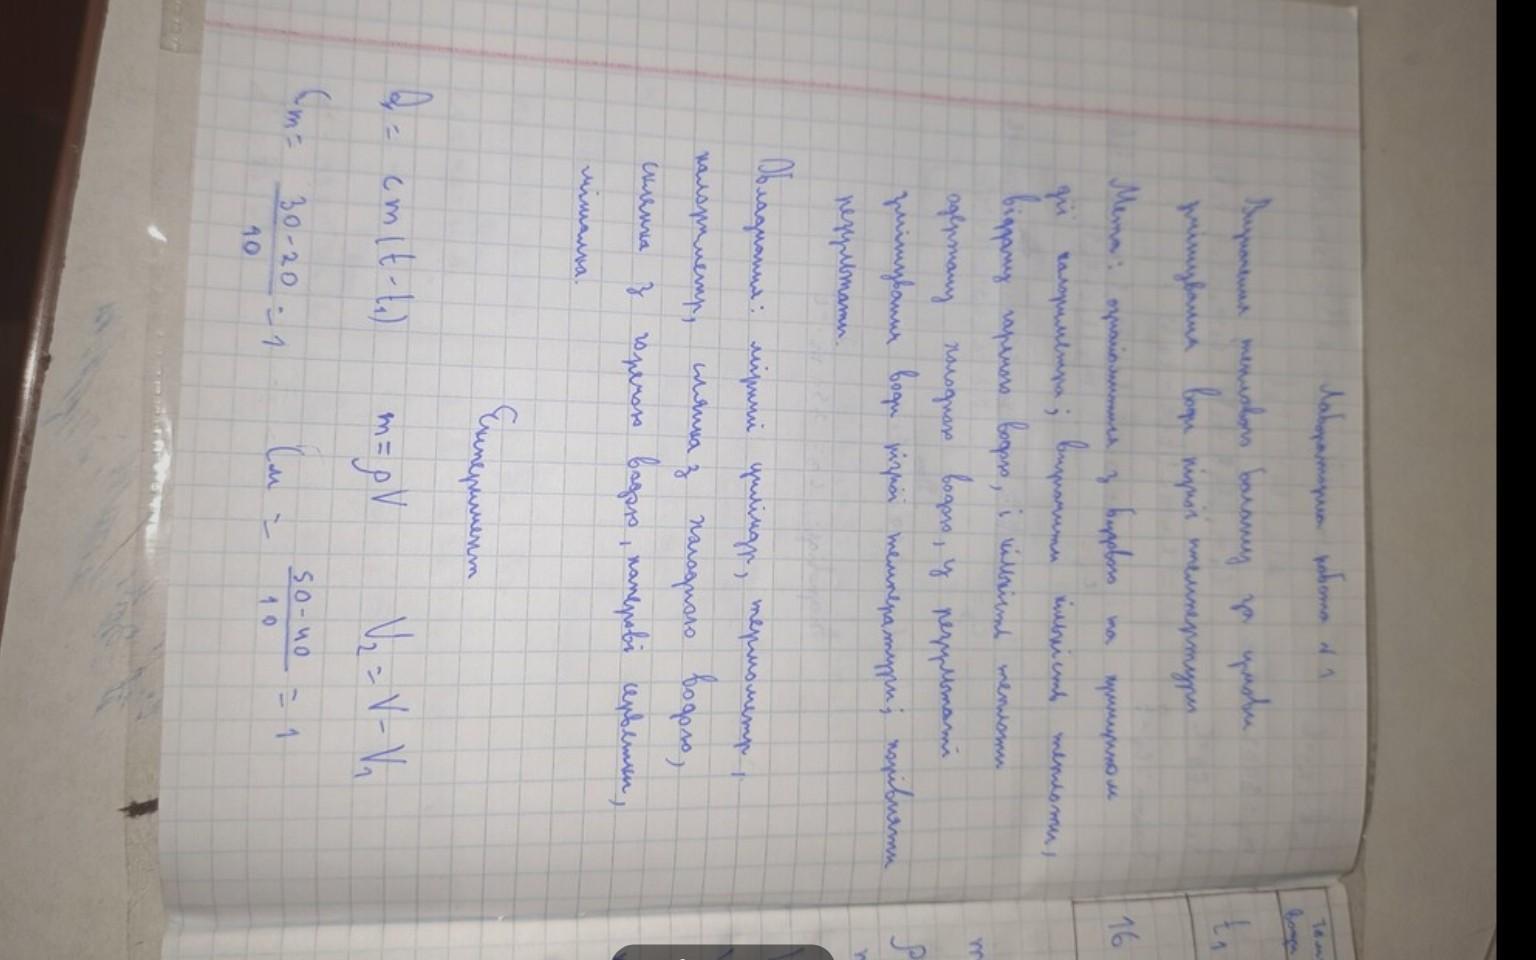 Лабораторна робота №1
Вивчення теплового балансу за умови
змішування води різної температури
Мета: ознайомитися з будовою та принципом
дії калориметра; визначити кількість теплоти,
віддану гарячою водою, і кількість теплоти
одержану холодною водою, у результаті
змішування води різної температури; порівняти
результати.
Обладнання: мірний циліндр, термометр,
калориметр, склянка з холодною водою,
склянка з гарячою водою, паперові серветки,
мішалка.
Експеримент
Q = cm(t-t₁) m=ρV V₂=V-V₁
Cт= 30-20/10 = 1 Cм = 50-40/10 = 1
води
t₁
16
m
ρ